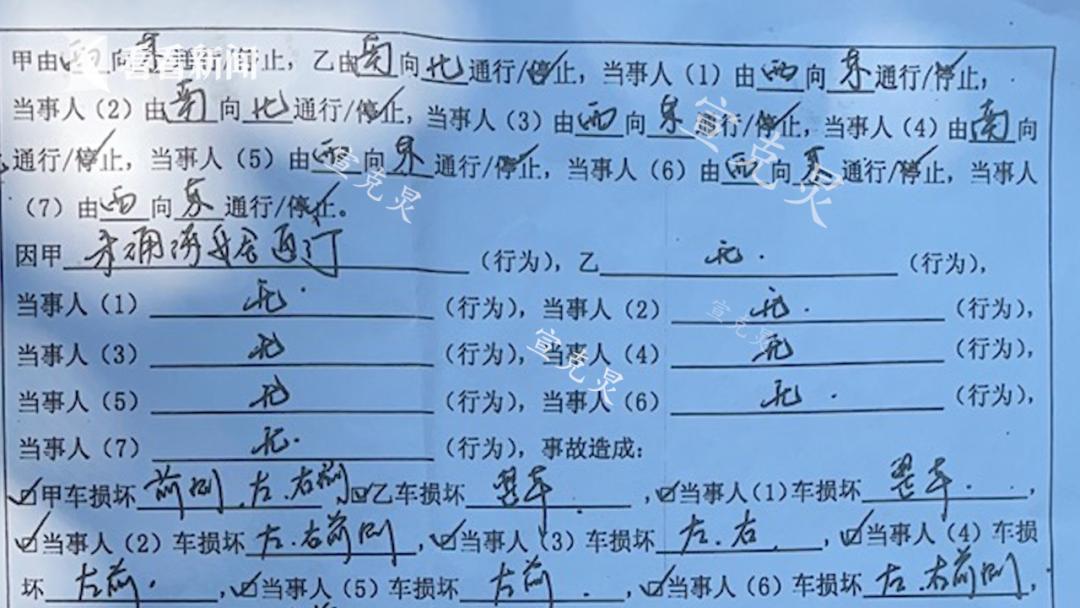 看看新闻
甲由西向东通行/停止，乙由南向北通行/停止，当事人（1）由西向东通行/停止，
当事人（2）由南向北通行/停止，当事人（3）由西向东通行/停止，当事人（4）由南向
通行/停止，当事人（5）由西向东通行/停止，当事人（6）由西向东通行/停止，当事人
（7）由西向东通行/停止。
因甲未确保安全通行（行为），乙无.（行为），
当事人（1）无.（行为），当事人（2）无.（行为），
当事人（3）无（行为），当事人（4）无（行为），
当事人（5）无（行为），当事人（6）无.（行为），
当事人（7）无.（行为），事故造成：
☑甲车损坏前侧、左、右前☑乙车损坏整车，☑当事人(1)车损坏整车.，
☑当事人（2）车损坏左、右前侧，☑当事人（3）车损坏左、右，☑当事人（4）车损
坏左前.，☑当事人（5）车损坏左前，☑当事人（6）车损坏左、右前侧，
宣克炅
宣克炅
宣克炅
宣克炅